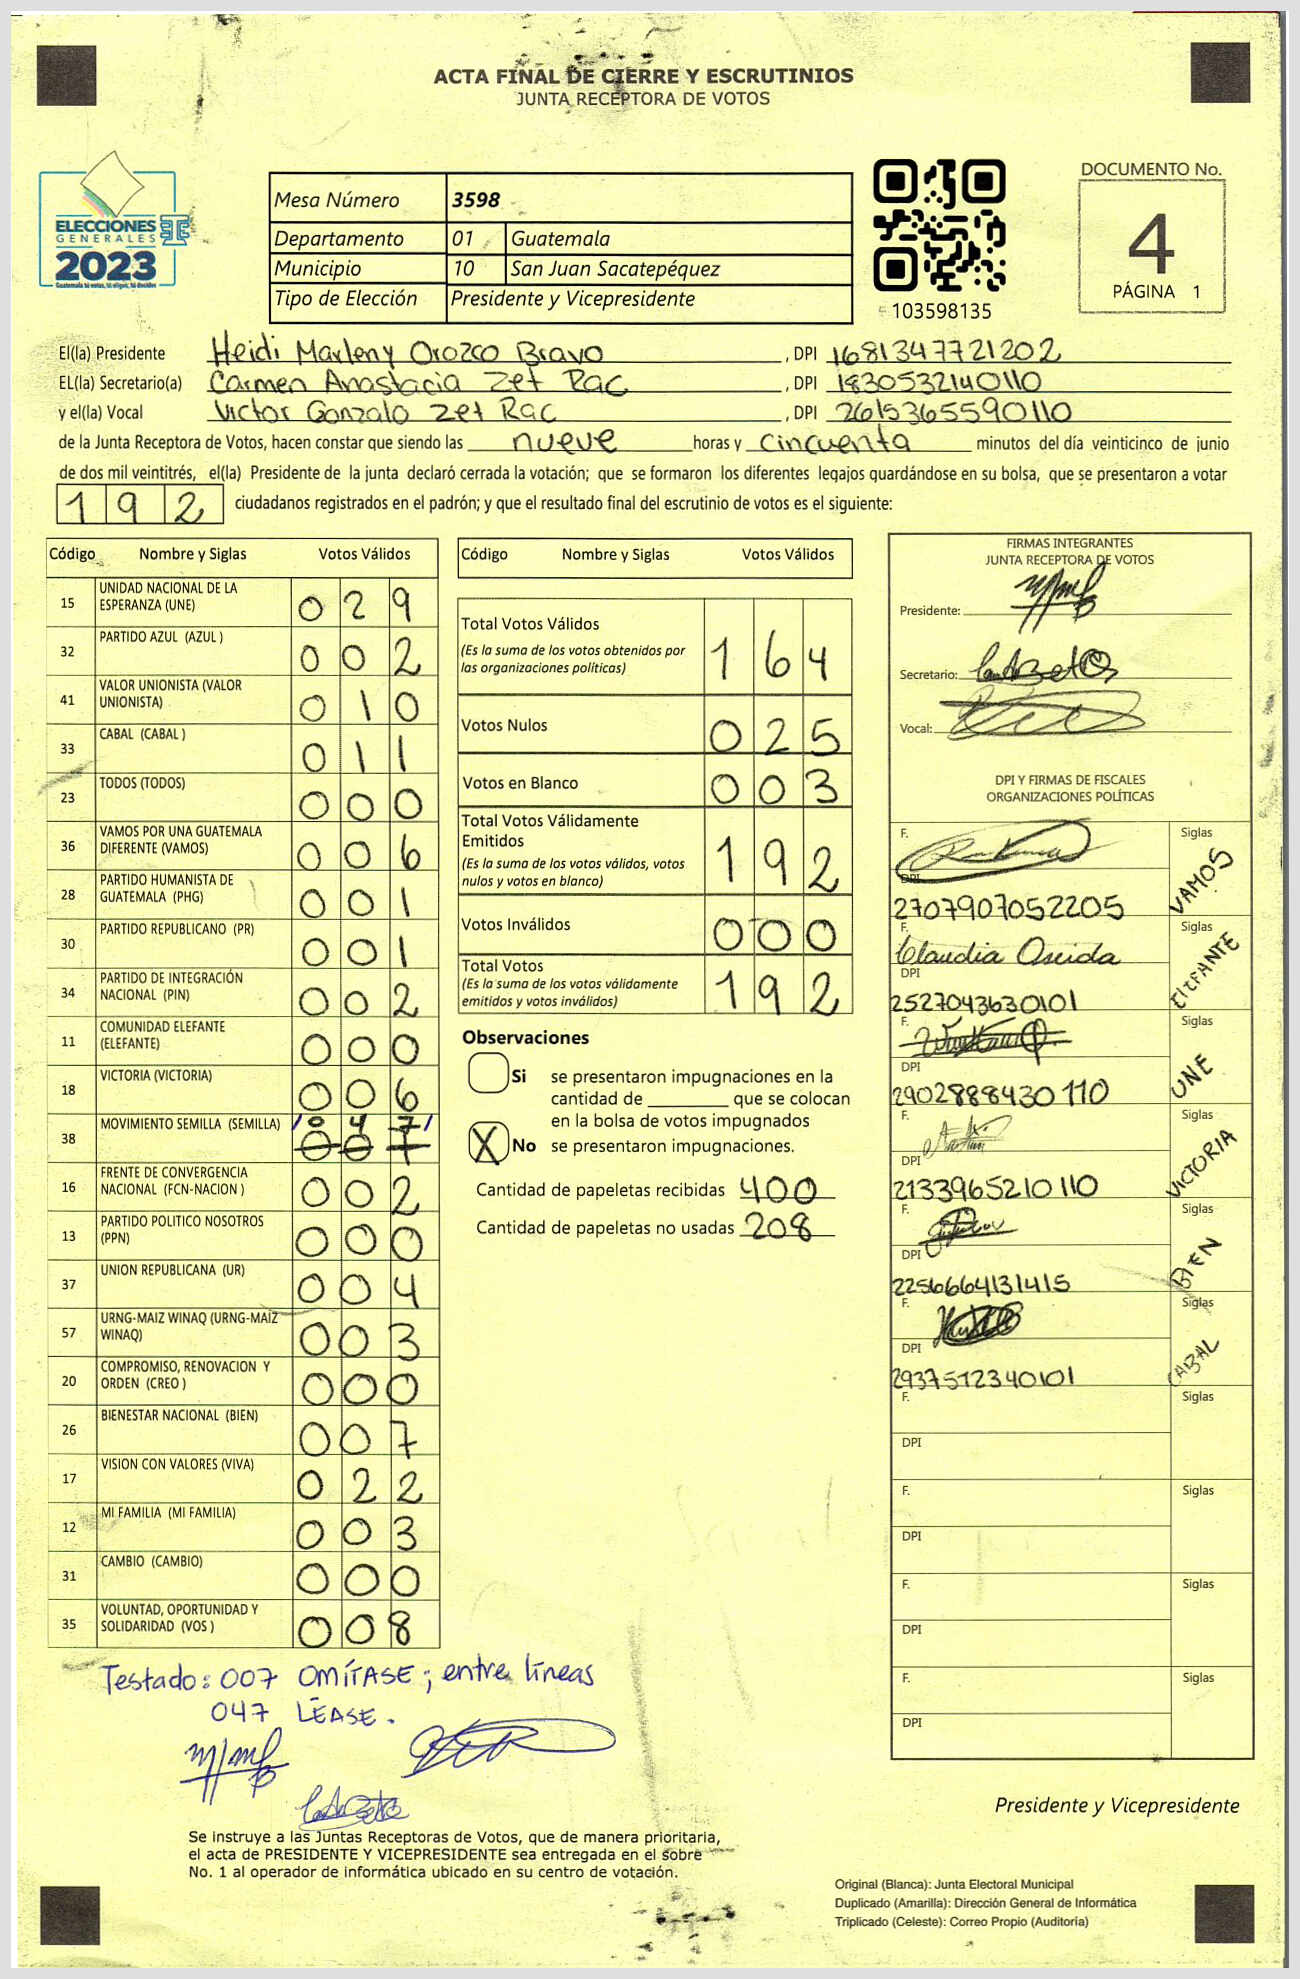 ACTA FINAL DE CIERRE Y ESCRUTINIOS
JUNTA RECEPTORA DE VOTOS
ELECCIONES
GENERALES
2023
Guatemala tú votas, tú eliges, tú decides
Mesa Número 3598
Departamento 01 Guatemala
Municipio 10 San Juan Sacatepéquez
Tipo de Elección Presidente y Vicepresidente
103598135
DOCUMENTO No.
4
PÁGINA 1
El(la) Presidente Heidi Marleny Orozco Bravo, DPI 1681347721202
EL(la) Secretario(a) Carmen Anastacia Zet Rac, DPI 1830532140110
y el(la) Vocal Victor Gonzalo Zet Rac, DPI 2615365590110
de la Junta Receptora de Votos, hacen constar que siendo las nueve horas y cincuenta minutos del día veinticinco de junio
de dos mil veintitrés, el(la) Presidente de la junta declaró cerrada la votación; que se formaron los diferentes legajos guardándose en su bolsa, que se presentaron a votar
192 ciudadanos registrados en el padrón; y que el resultado final del escrutinio de votos es el siguiente:
Código Nombre y Siglas Votos Válidos
15 UNIDAD NACIONAL DE LA ESPERANZA (UNE) 029
32 PARTIDO AZUL (AZUL ) 002
41 VALOR UNIONISTA (VALOR UNIONISTA) 010
33 CABAL (CABAL ) 011
23 TODOS (TODOS) 000
36 VAMOS POR UNA GUATEMALA DIFERENTE (VAMOS) 006
28 PARTIDO HUMANISTA DE GUATEMALA (PHG) 001
30 PARTIDO REPUBLICANO (PR) 001
34 PARTIDO DE INTEGRACIÓN NACIONAL (PIN) 002
11 COMUNIDAD ELEFANTE (ELEFANTE) 000
18 VICTORIA (VICTORIA) 006
38 MOVIMIENTO SEMILLA (SEMILLA) /047/ 007
16 FRENTE DE CONVERGENCIA NACIONAL (FCN-NACION ) 002
13 PARTIDO POLITICO NOSOTROS (PPN) 000
37 UNION REPUBLICANA (UR) 004
57 URNG-MAIZ WINAQ (URNG-MAÍZ WINAQ) 003
20 COMPROMISO, RENOVACION Y ORDEN (CREO ) 000
26 BIENESTAR NACIONAL (BIEN) 007
17 VISION CON VALORES (VIVA) 022
12 MI FAMILIA (MI FAMILIA) 003
31 CAMBIO (CAMBIO) 000
35 VOLUNTAD, OPORTUNIDAD Y SOLIDARIDAD (VOS ) 008
Testado: 007 OMÍTASE; entre líneas
047 LÉASE.
Código Nombre y Siglas Votos Válidos
Total Votos Válidos 164
(Es la suma de los votos obtenidos por
las organizaciones políticas)
Votos Nulos 025
Votos en Blanco 003
Total Votos Válidamente
Emitidos 192
(Es la suma de los votos válidos, votos
nulos y votos en blanco)
Votos Inválidos 000
Total Votos 192
(Es la suma de los votos válidamente
emitidos y votos inválidos)
Observaciones
Si se presentaron impugnaciones en la
cantidad de ________ que se colocan
en la bolsa de votos impugnados
X No se presentaron impugnaciones.
Cantidad de papeletas recibidas 400
Cantidad de papeletas no usadas 208
FIRMAS INTEGRANTES
JUNTA RECEPTORA DE VOTOS
Presidente:
Secretario:
Vocal:
DPI Y FIRMAS DE FISCALES
ORGANIZACIONES POLÍTICAS
F. Siglas VAMOS
DPI
2707907052205
F. Claudia Oseida Siglas ELEFANTE
DPI
2527043630101
F. Siglas UNE
DPI
2902888430110
F. Siglas VICTORIA
DPI
2133965210110
F. Siglas BIEN
DPI
2256664131415
F. Siglas CABAL
DPI
2937512340101
F. Siglas
DPI
F. Siglas
DPI
F. Siglas
DPI
F. Siglas
DPI
Presidente y Vicepresidente
Se instruye a las Juntas Receptoras de Votos, que de manera prioritaria,
el acta de PRESIDENTE Y VICEPRESIDENTE sea entregada en el sobre
No. 1 al operador de informática ubicado en su centro de votación.
Original (Blanca): Junta Electoral Municipal
Duplicado (Amarilla): Dirección General de Informática
Triplicado (Celeste): Correo Propio (Auditoría)